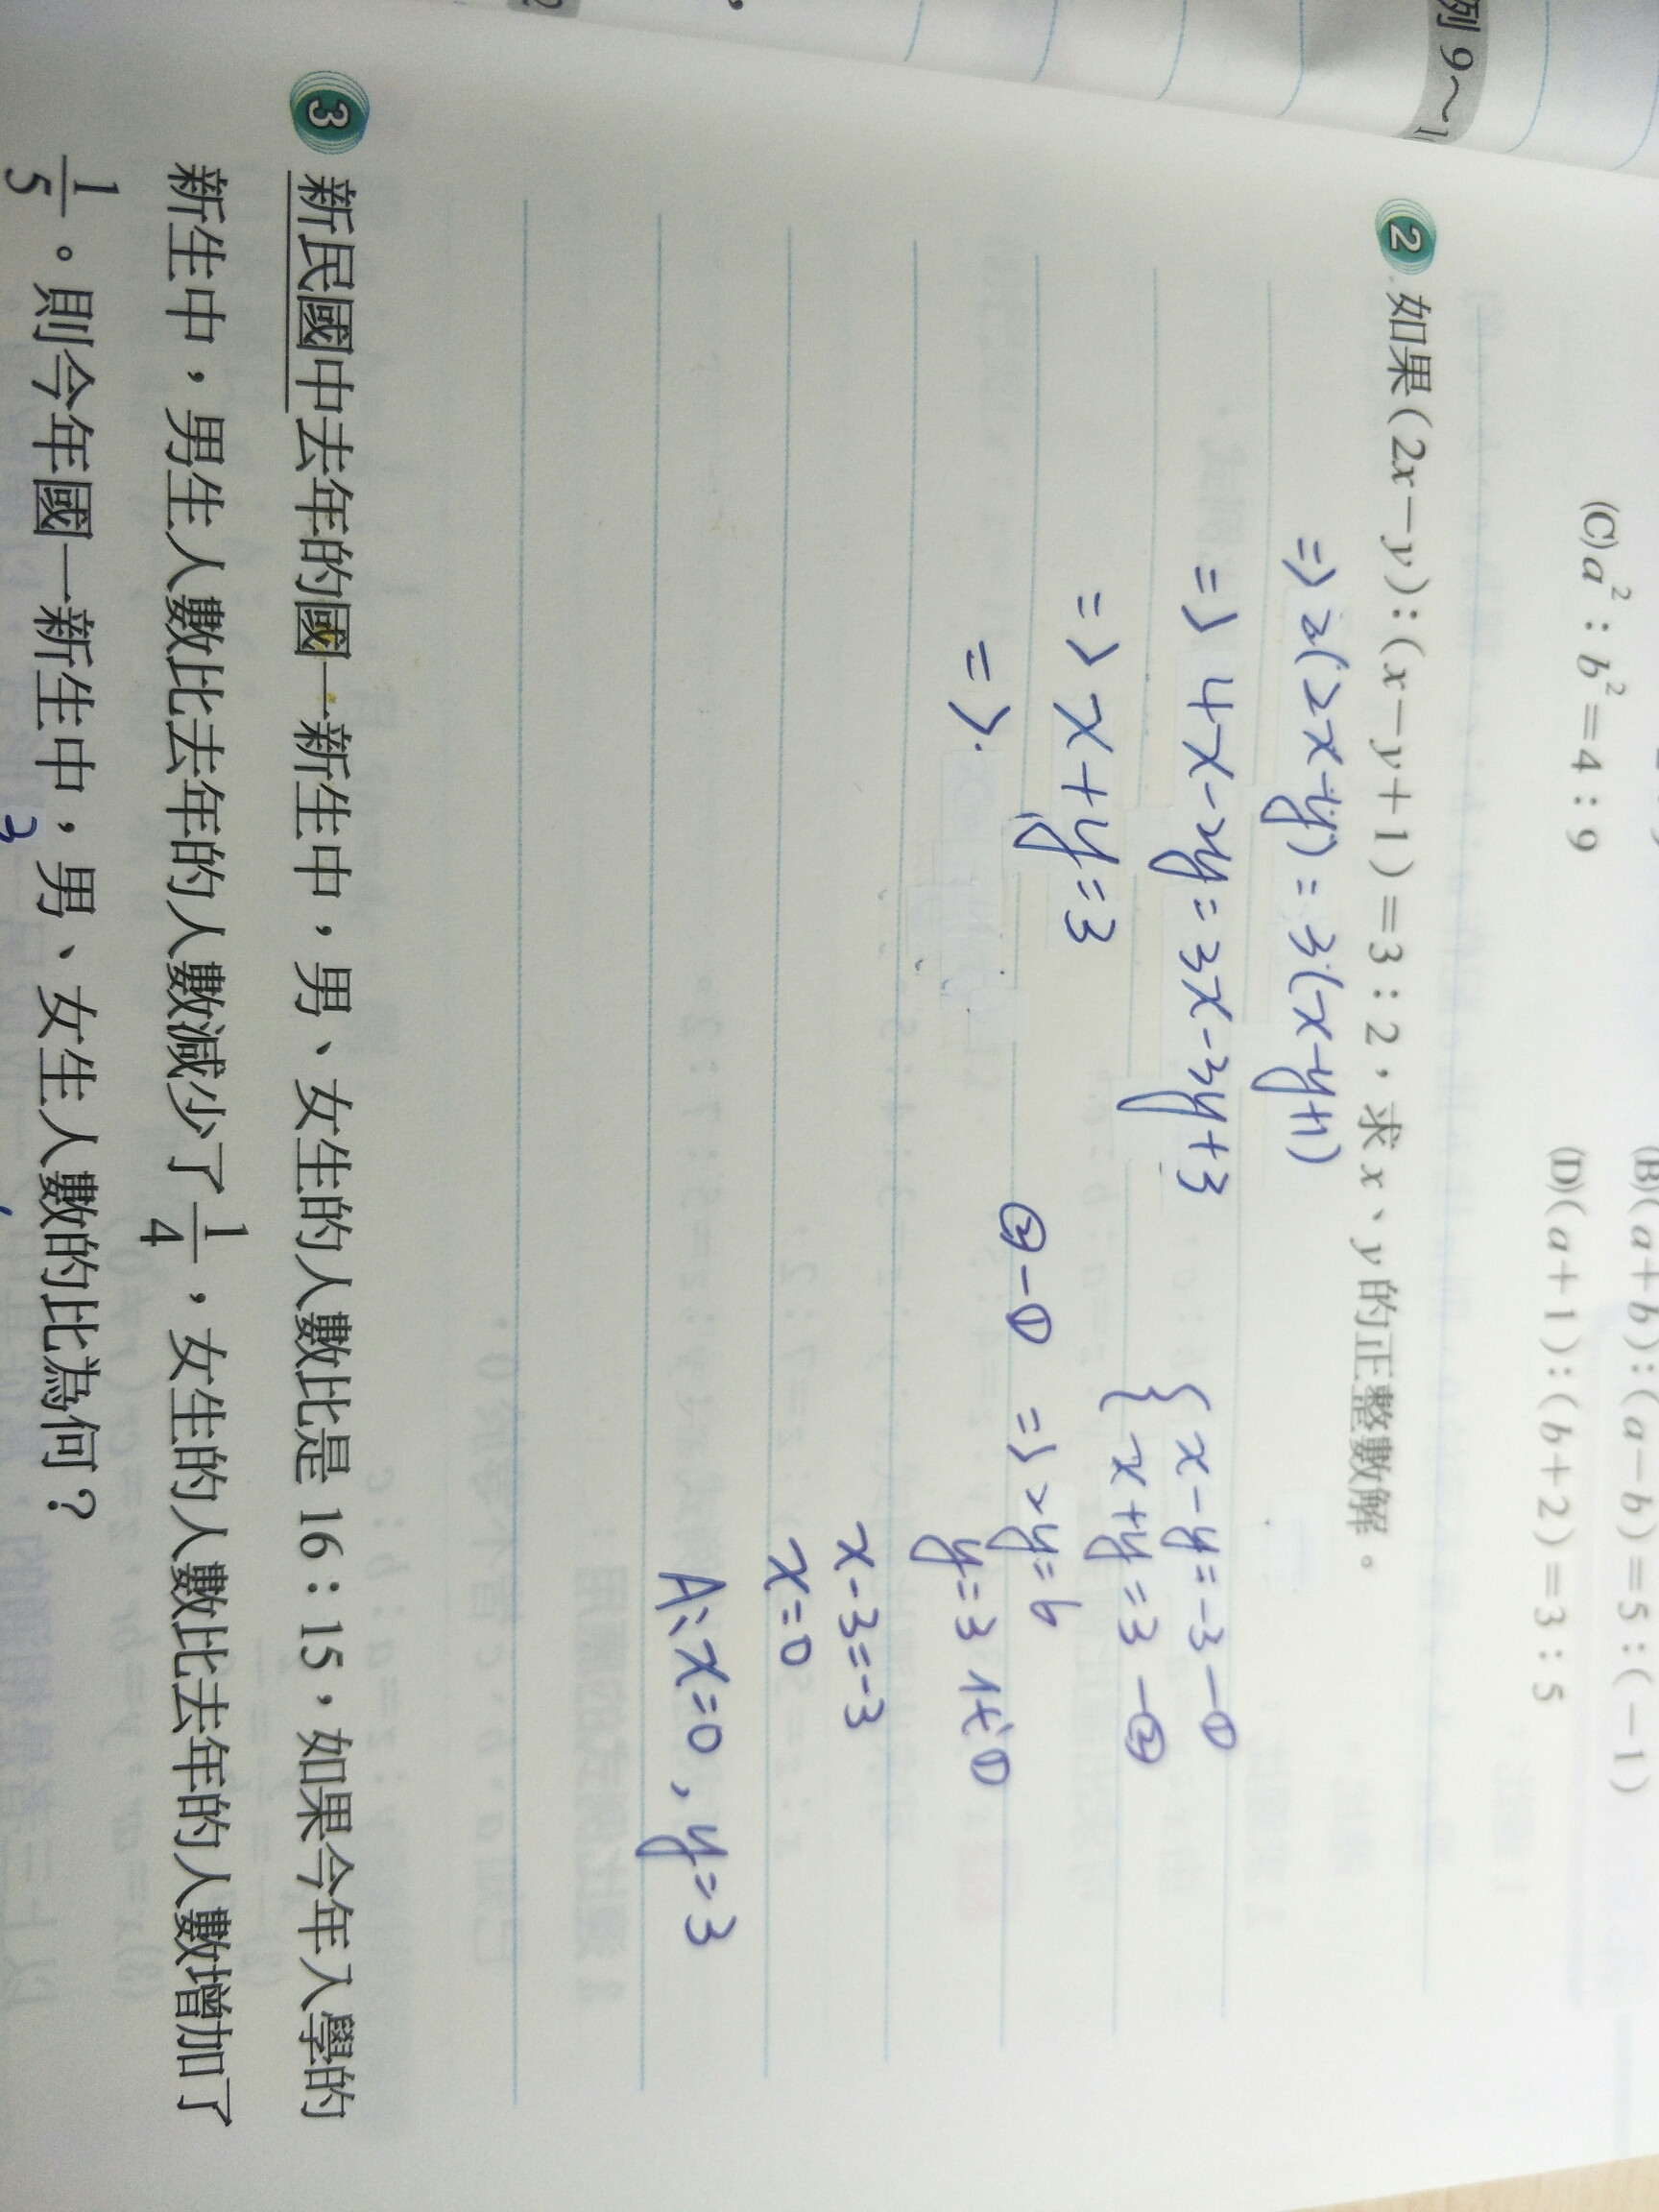 例 9~1
(B)(a+b):(a-b)=5:(-1)
(C)a²:b²=4:9
(D)(a+1):(b+2)=3:5
2 如果(2x-y):(x-y+1)=3:2,求 x、y 的正整數解。
=>2(2x-y)=3(x-y+1)
=>4x-2y=3x-3y+3
=>x+y=3
=>
{x-y=-3-①
x+y=3-②
②-①=>2y=6
y=3 代①
x-3=-3
x=0
A:x=0,y=3
3 新民國中去年的國一新生中,男、女生的人數比是 16:15,如果今年入學的
新生中,男生人數比去年的人數減少了1/4,女生的人數比去年的人數增加了
1/5。則今年國一新生中,男、女生人數的比為何?